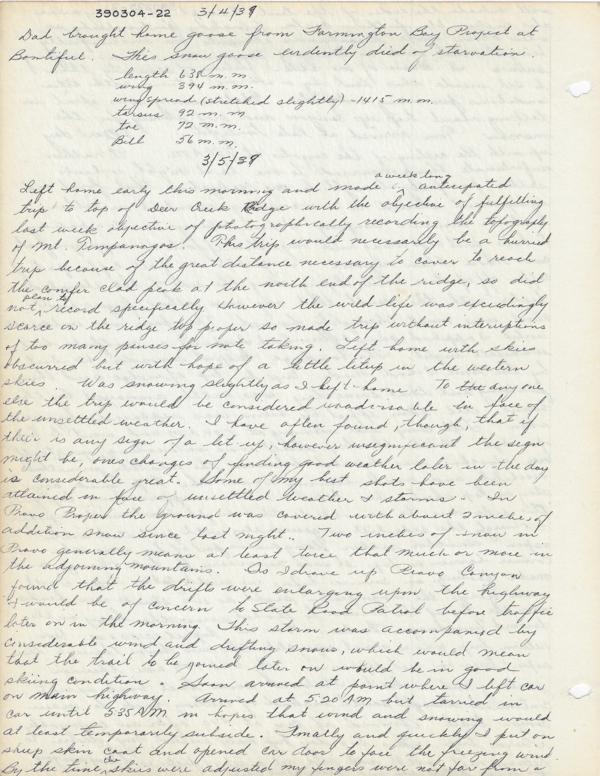 390304-22 3/4/39
Dad brought home goose from Farmington Bay Project at
Bontiful. This snow goose evidently died of starvation.
length 638 m.m.
wing 394 m.m.
wing spread (stretched slightly) - 1415 m.m.
tarsus 92 m.m
toe 72 m.m.
Bill 56 m.m.
3/5/39
a week long
Left home early this morning and made anticipated
trip to top of Deer Creek Ridge with the objective of fulfilling
last week objective of photographically recording the topography
of Mt. Timpanogos. This trip would necessarily be a hurried
trip because of the great distance necessary to cover to reach
the conifer clad peak at the north end of the ridge, so did
plan to
not record specifically However the wild life was exceedingly
scarce on the ridge top proper so made trip without interruptions
of too many pauses for note taking. Left home with skies
obscurred but with hope of a little letup in the western
skies. Was snowing slightly as I left home To any one
else the trip would be considered unadvisable in face of
the unsettled weather. I have often found, though, that if
their is any sign of a let up, however insignificant the sign
might be, ones changes of finding good weather later in the day
is considerable great. Some of my best shots have been
attained in face of unsettled weather & storms. In
Provo Proper the ground was covered with about 2 inches of
addition snow since last night. Two inches of snow in
Provo generally means at least twice that much or more in
the adjoining mountains. As I drove up Provo Canyon
found that the drifts were enlarging upon the highway
& would be of concern to State Road Patrol before traffic
later on in the morning. This storm was accompanied by
considerable wind and drifting snows, which would mean
that the trail to be joined later on would be in good
skiing condition. Soon arrived at point where I left car
on main highway. Arrived at 5:20 AM but tarried in
car until 5:35 A.M. in hopes that wind and snowing would
at least temporarily subside. Finally and quickly I put on
skin coat and opened car door to face the freezing wind.
the
By the time skies were adjusted my fingers were not far from a